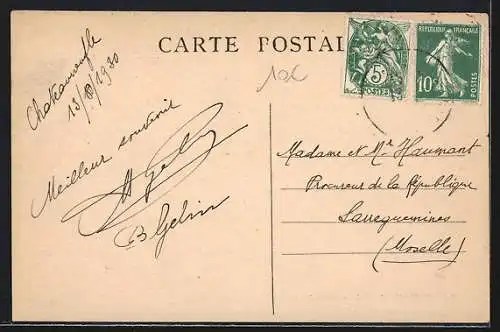 CARTE POSTAL
Chateauneuf le
13/8/1930
Meilleur souvenir
B Gelin
10€
5c
POSTES
RÉPUBLIQUE FRANÇAISE
10c
POSTES
Madame et Mr Haumant
Procureur de la République
Sarreguemines
(Moselle)